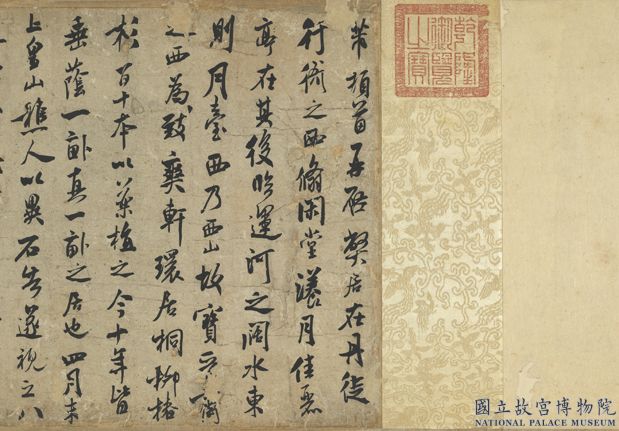 乾隆御覽之寶
芾頓首再啓弊居在丹徒
行衙之西翛閑堂漾月佳麗
亭在其後臨運河之闊水東
則月臺西乃西山故寶晉齋
之西為致爽軒環居桐柳椿
杉百十本以藥植之今十年皆
垂蔭一畝真一畝之居也四月末
上皇山樵人以異石告遂視之八
國立故宮博物院
NATIONAL PALACE MUSEUM